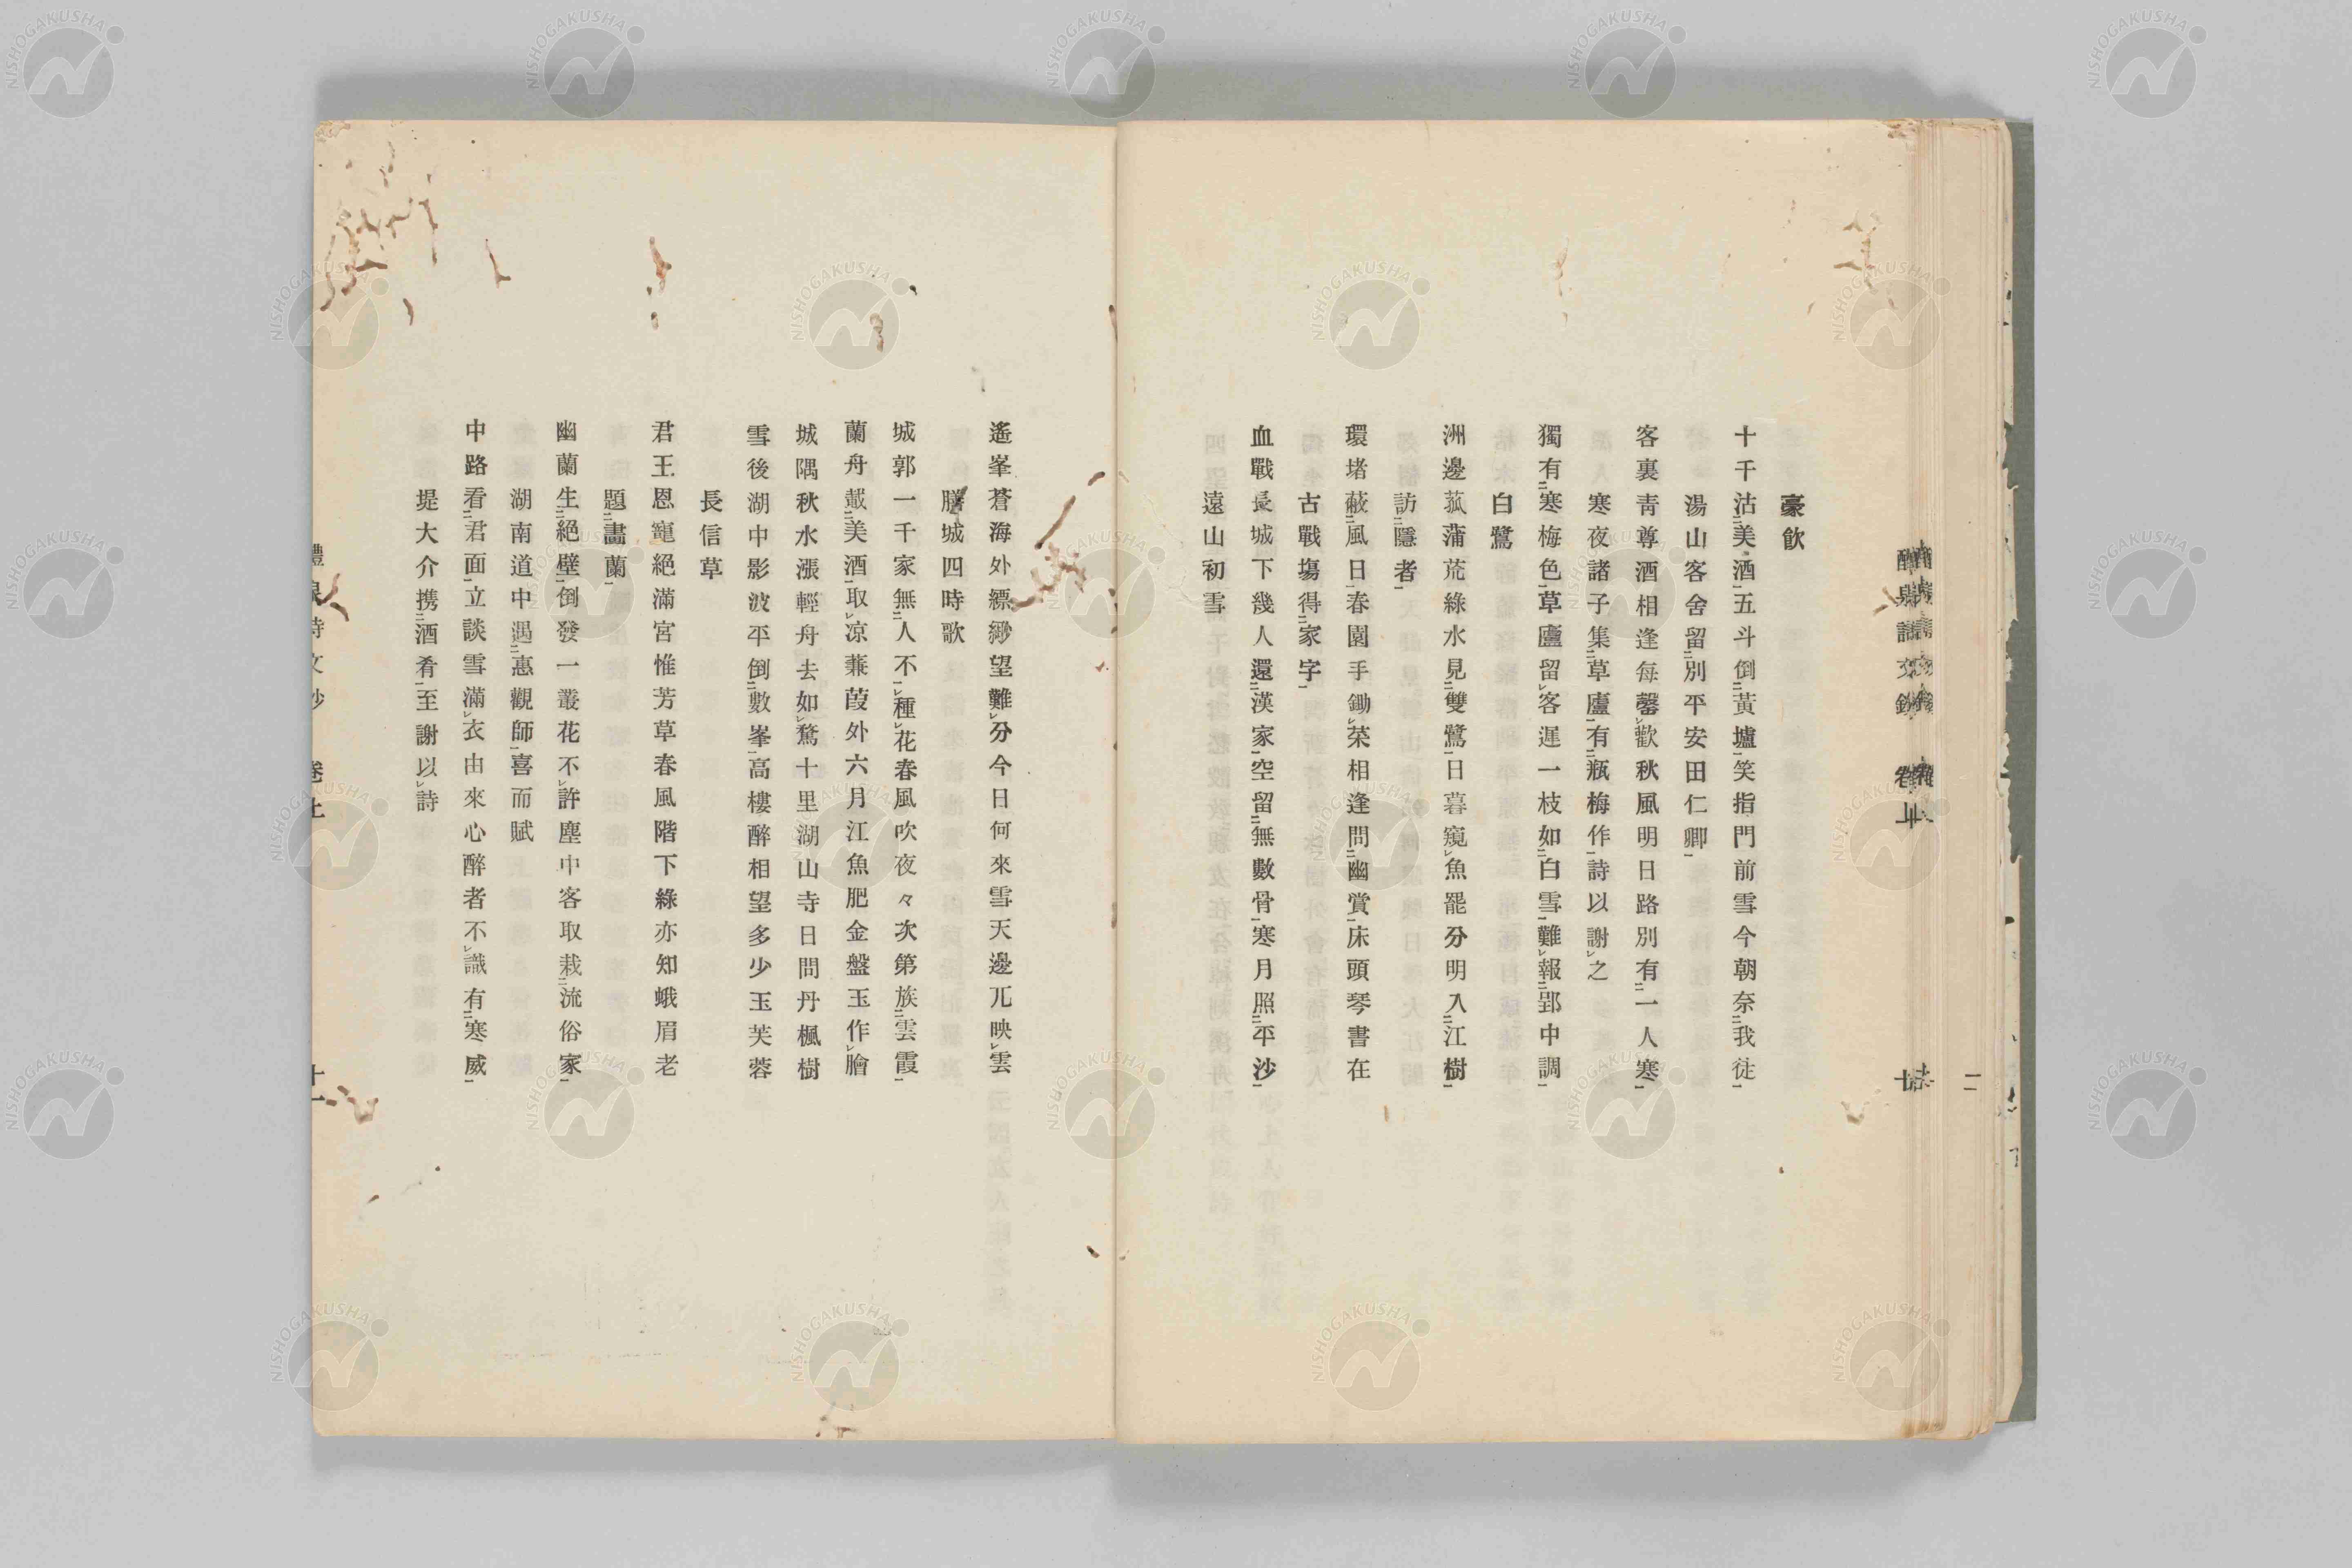 豪飮
十千沽美酒五斗倒黃壚笑指門前雪今朝奈我徒
湯山客舍留別平安田仁卿
客裏靑尊酒相逢每罄歡秋風明日路別有一人寒
寒夜諸子集草廬有瓶梅作詩以謝之
獨有寒梅色草廬留客遲一枝如白雪難報郢中調
白鷺
洲邊菰蒲荒綠水見雙鷺日暮窺魚罷分明入江樹
訪隱者
環堵蔽風日春園手鋤菜相逢問幽賞床頭琴書在
古戰塲得家字
血戰長城下幾人還漢家空留無數骨寒月照平沙
遠山初雪
遙峯蒼海外縹緲望難分今日何來雪天邊兀映雲
膳城四時歌
城郭一千家無人不種花春風吹夜々次第族雲霞
蘭舟載美酒取凉蒹葭外六月江魚肥金盤玉作膾
城隅秋水漲輕舟去如鶩十里湖山寺日問丹楓樹
雪後湖中影波平倒數峯高樓醉相望多少玉芙蓉
長信草
君王恩寵絕滿宮惟芳草春風階下綠亦知蛾眉老
題畵蘭
幽蘭生絕壁倒發一叢花不許塵中客取栽流俗家
湖南道中遇惠觀師喜而賦
中路看君面立談雪滿衣由來心醉者不識有寒威
堤大介携酒肴至謝以詩
醴泉詩文鈔 卷上 十一
NISHOGAKUSHA